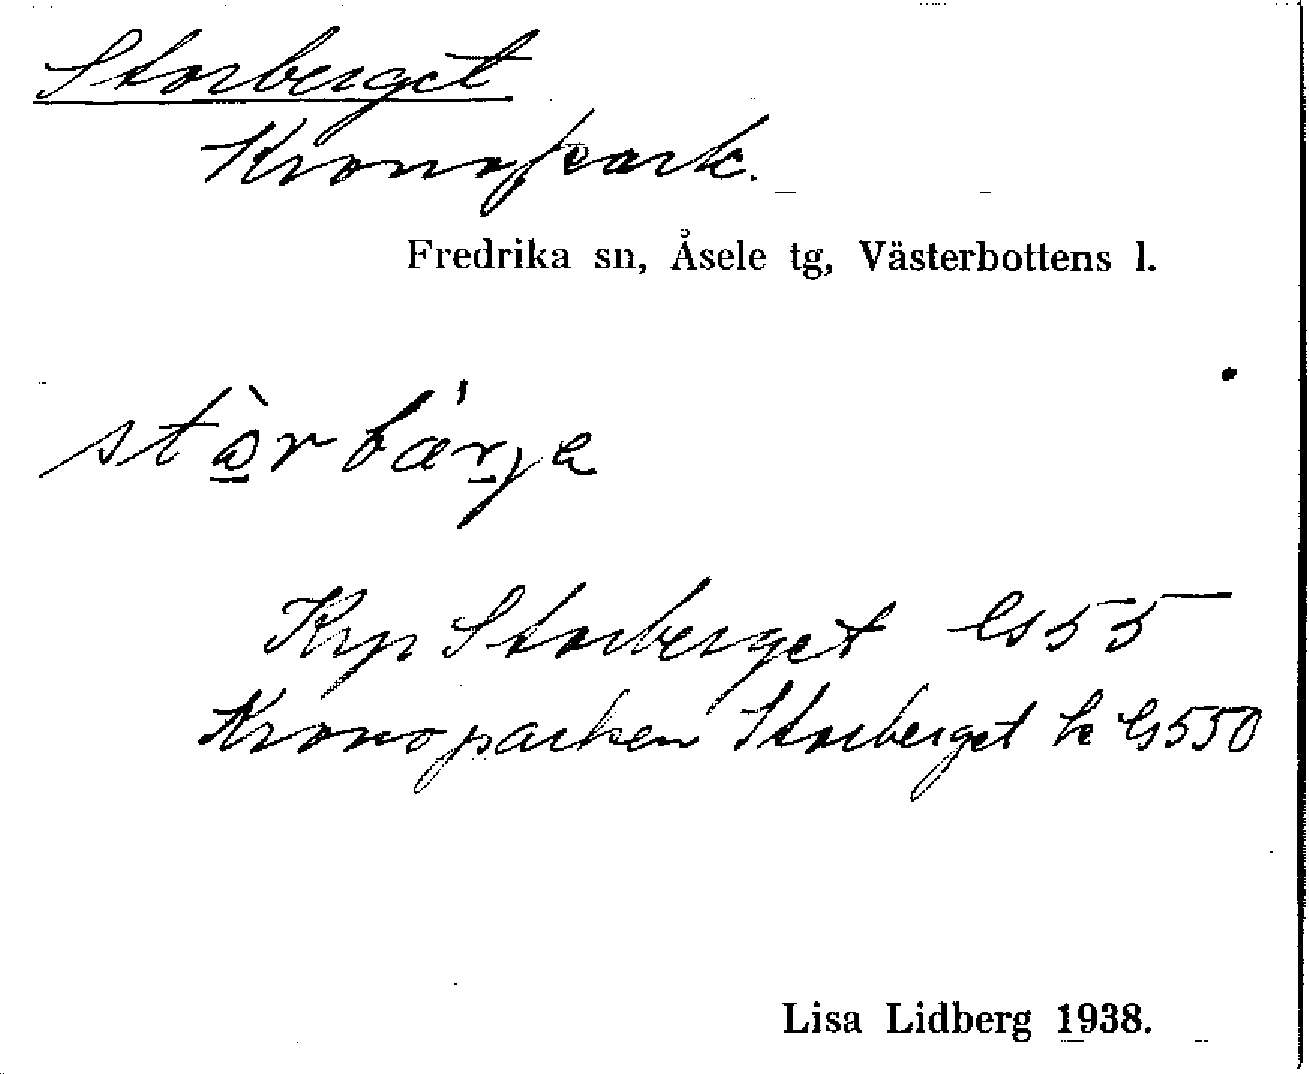 Storberget
Kronopark.
Fredrika sn, Åsele tg, Västerbottens l.
Krp Storberget Gs 55
Kronoparken Storberget k Gs 550
Lisa Lidberg 1938.